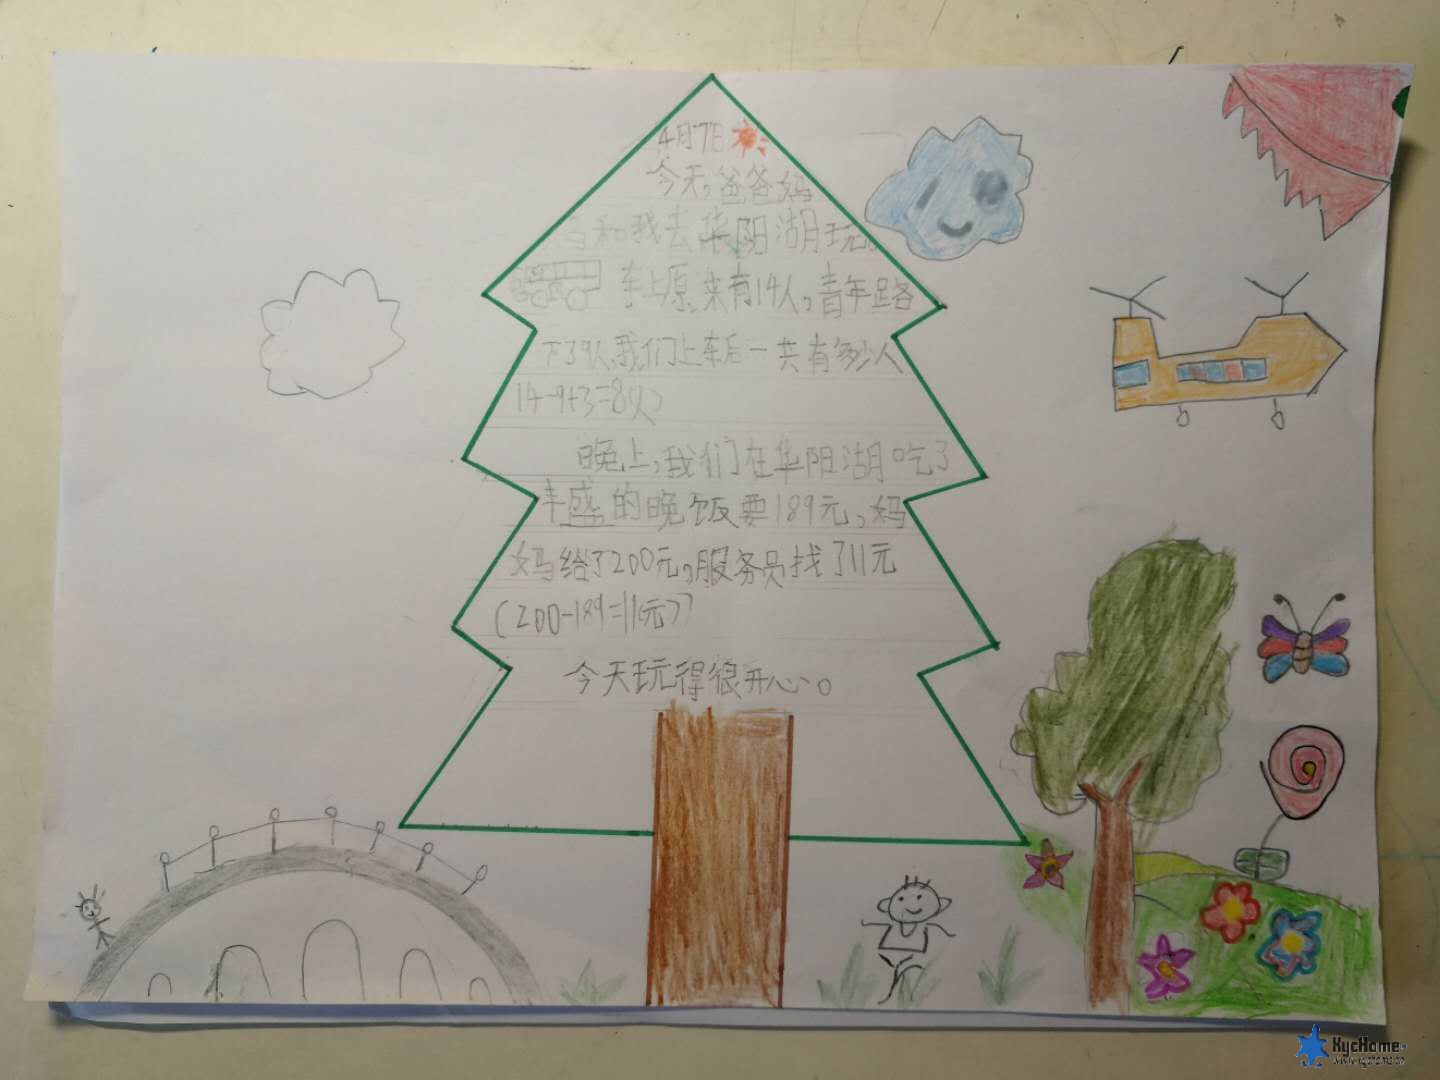 4月7日
今天,爸爸妈
妈和我去华阳湖玩。
车上原来有14人,青年路
下了9人,我们上车后一共有多少人
14-9+3=8(人)
晚上,我们在华阳湖吃了
丰盛的晚饭要189元,妈
妈给了200元,服务员找了11元
(200-189=11(元))
今天玩得很开心。
KycHome